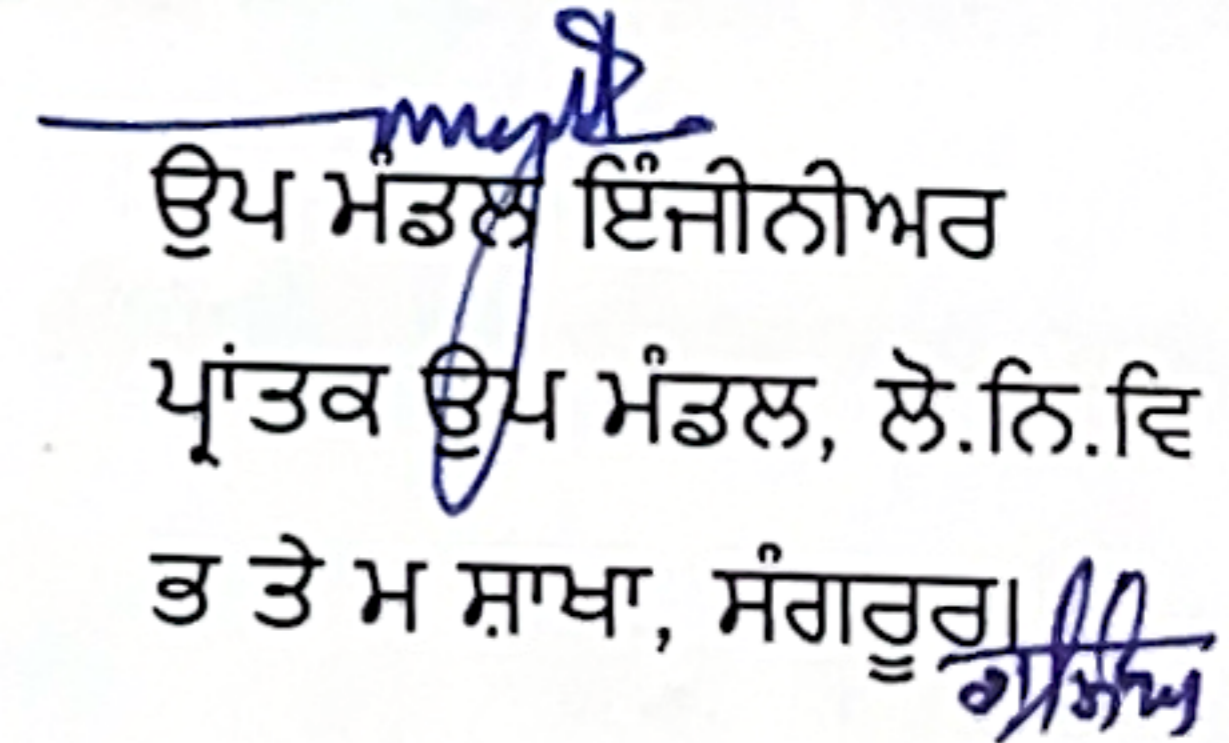 ਉਪ ਮੰਡਲ ਇੰਜੀਨੀਅਰ
ਪ੍ਰਾਂਤਕ ਉਪ ਮੰਡਲ, ਲੋ.ਨਿ.ਵਿ
ਭ ਤੇ ਮ ਸ਼ਾਖਾ, ਸੰਗਰੂਰ।